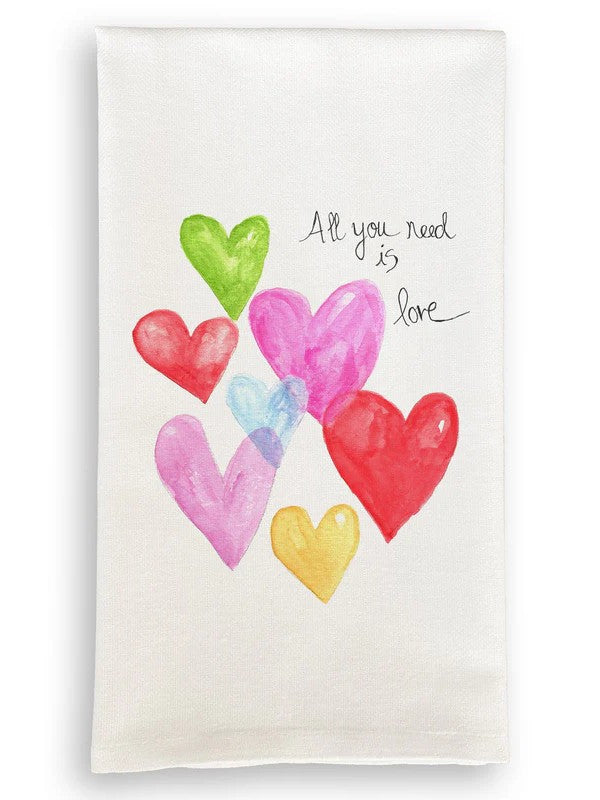 All you need
is
love